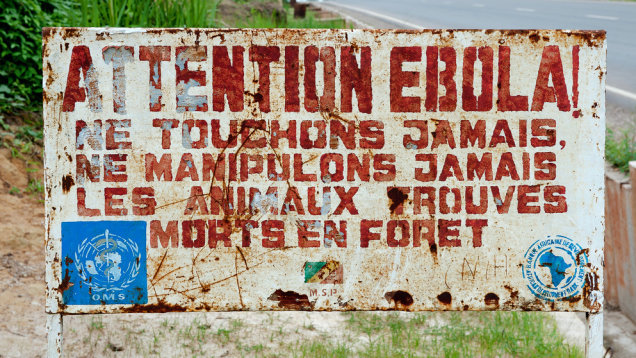 ATTENTION EBOLA!
NE TOUCHONS JAMAIS,
NE MANIPULONS JAMAIS
LES ANIMAUX TROUVES
MORTS EN FORET
O.M.S
M.S.P